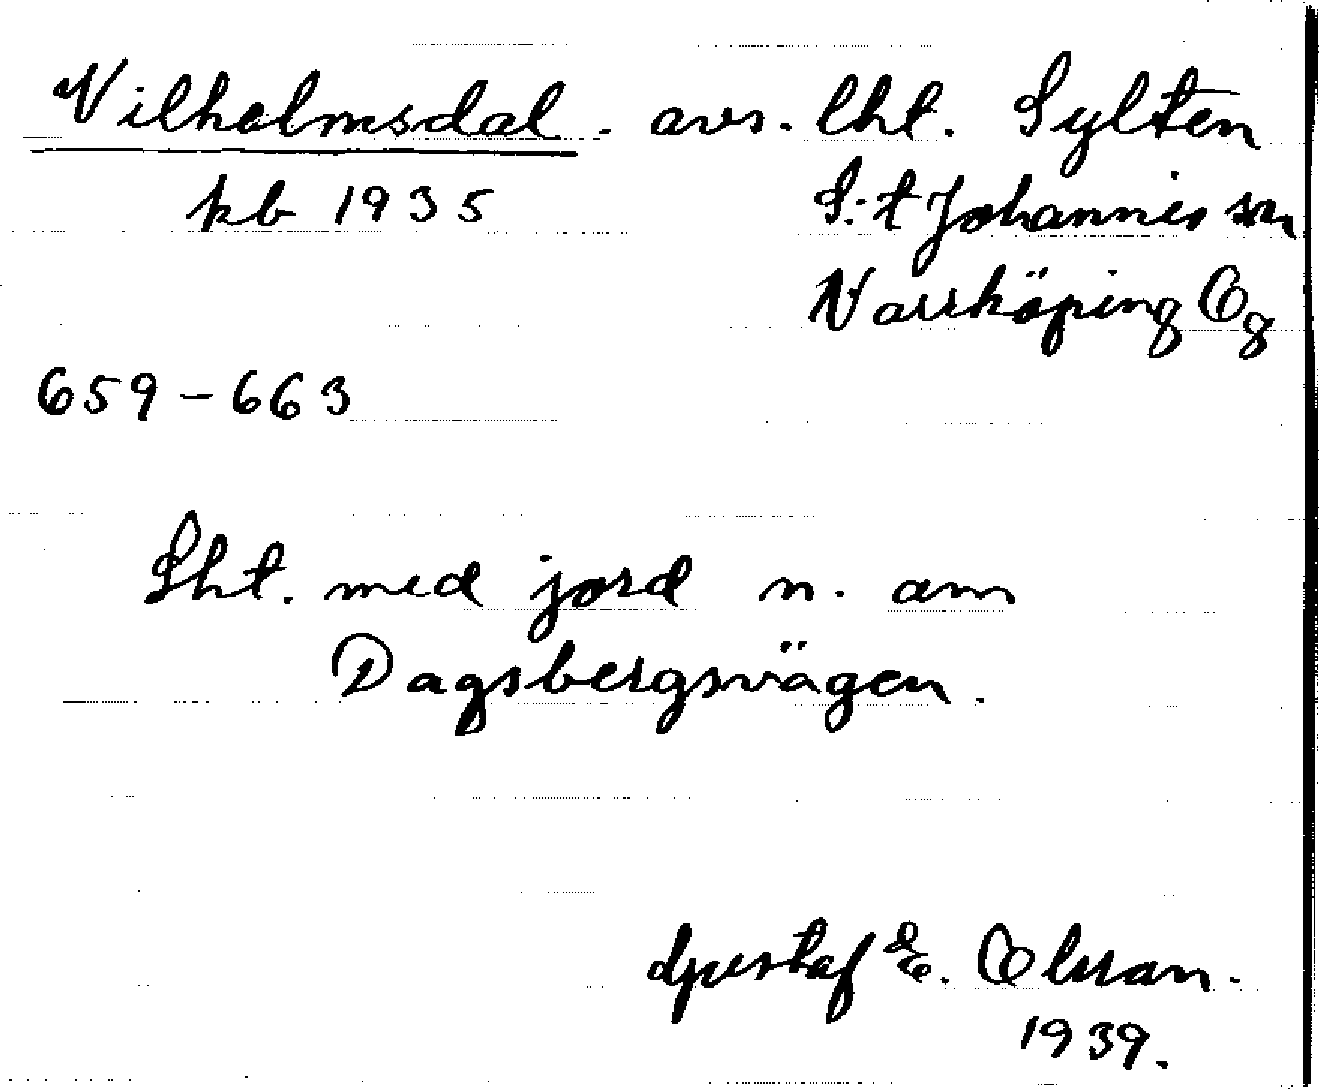 Vilhelmsdal. avs. lht. Sylten
kb 1935 S:t Johannes sn
Norrköping Ög
659-663
Lht. med jord n. om
Dagsbergsvägen.
Gustaf E. Olson.
1939.